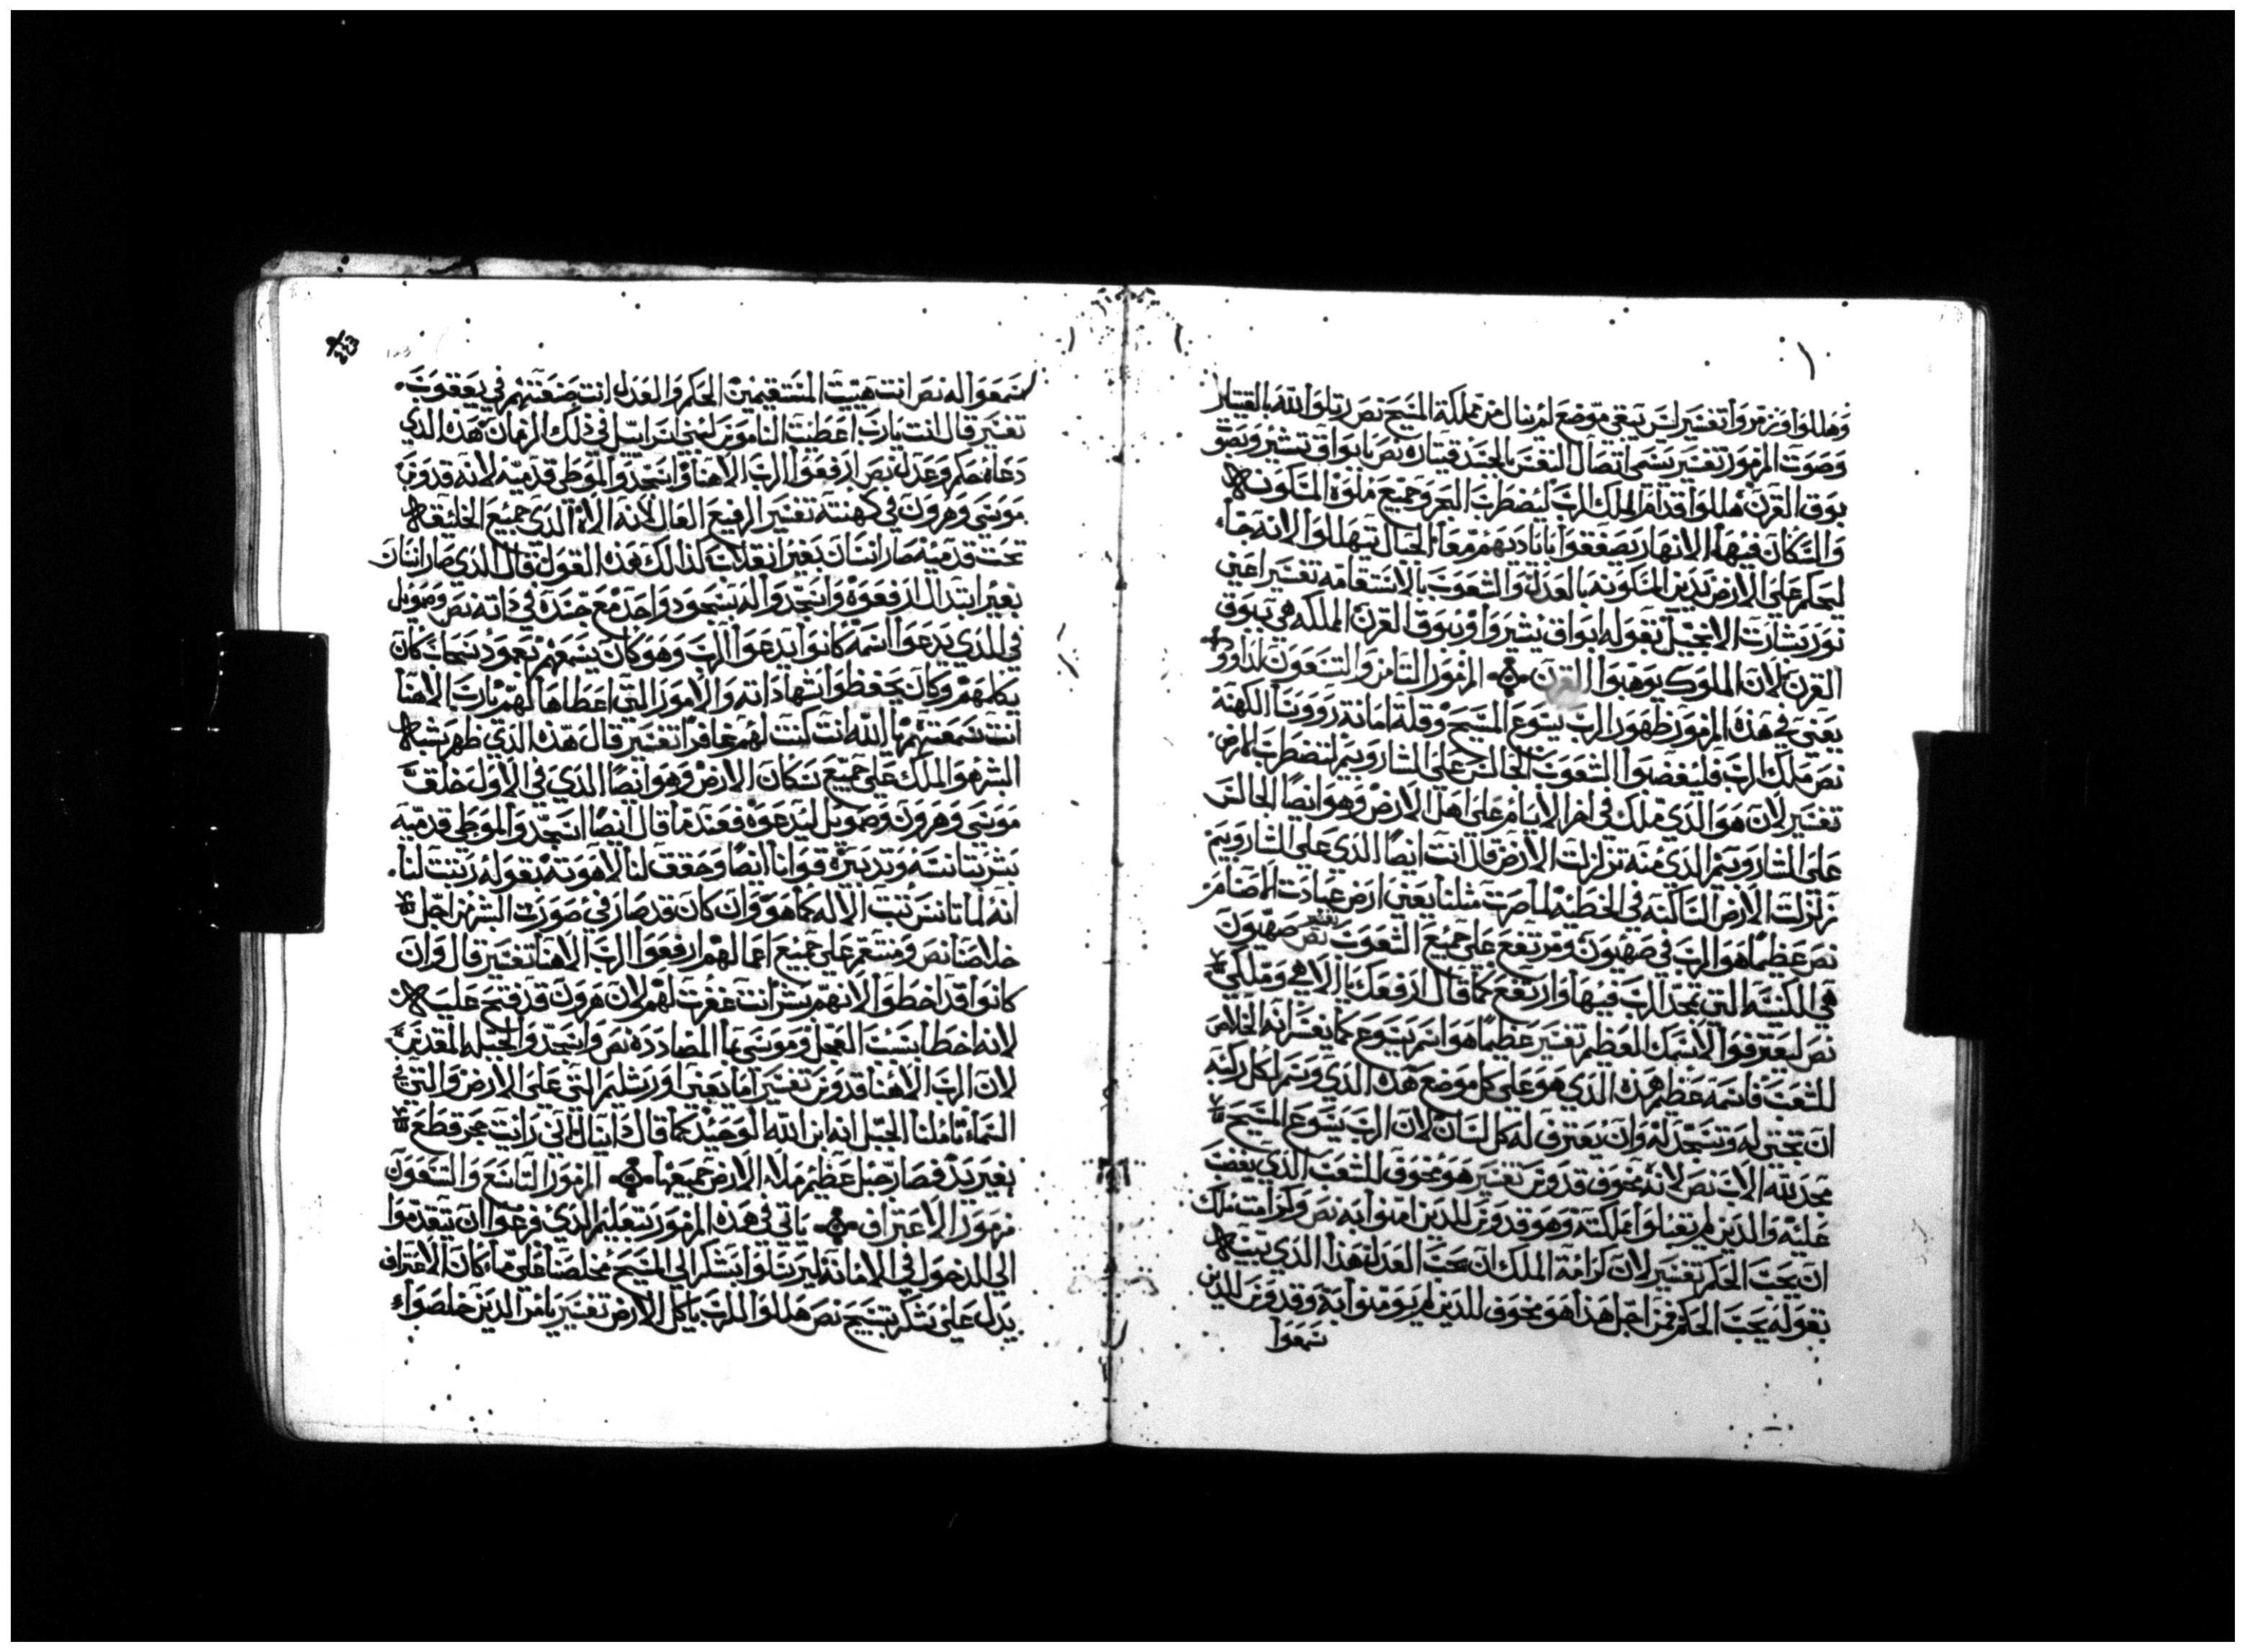 وهللوا وزمروا تفسير ليس تبقى موضع لم ينال من مملكة المسيح نص رتلوا لله بالقيتار
وصوت المزمور تفسير يسمى اتصال النفس بالجسد قيتاره نص بابواق تشير وبصوت
بوق القرن هللوا قدام الملك الرب ليضطرب البحر وجميع ملوه المسكونه
والسكان فيها الانهار يصفقوا باياديهم معا الجبال يتهللوا لانه جاء
ليحكم على الارض يدين المسكونه بالعدل والشعوب بالاستقامه تفسير اعني
نور بشارت الانجيل بقوله ابواق يشيروا وببوق القرن المملكه هي ببوق
القرن لان الملوك يوهبوا القرن المزمور الثامن والتسعون لداوود
يعني في هذه المزمور ظهور الرب يسوع المسيح وقلة امانة رووسا الكهنه
نص ملك الرب فليغضبوا الشعوب الجالس على الشاروبيم لتضطرب الارض
تفسير لان هو الذي ملك في اخر الايام على اهل الارض وهو ايضا الجالس
على الشاروبيم الذي منه تزلزلت الارض قال انت ايضا الذي على الشاروبيم
زلزلت الارض الساكنه في الخطيه لما صرت مثلنا يعني ارض عبادت الاصنام
نص عظيما هو الرب في صهيون ومرتفع على جميع الشعوب نص تفسير صهيون
هي الكنيسه التي تمجد الرب فيها وارتفع كما قال ارفعك يا الاهي وملكي
نص ليعترفوا لاسمك العظيم تفسير عظيما هو اسم يسوع كما يفسر انه الخلاص
للشعب فاسمه عظيم هذه الذي هو على كل موضع هذه الذي وسم لكل ركبه
ان تجثي له وتسجد له وان يعترف له كل لسان لان الرب يسوع المسيح
مجد يته الاب نص لانه مخوف قدوس تفسير هو مخوف للشعب الذي يغضب
عليه والذين لم يقبلوا مملكته وهو قدوس للذين امنوا به نص وكرامت ملك
ان يحب الحكم تفسير لان كرامة الملك ان يحب العدل هذا الذي يثبت
بقوله يحب الحكم فمن اجل هذا هو مخوف للذين لم يومنوا به وقدوس للذين
سمعوا
سمعوا له نص انت هييت المستقيمين الحكم والعدل انت صنعتهم في يعقوب
تفسير قال انت يارب اعطيت الناموس لبني اسراييل في ذلك الزمان هذه الذي
دعاه حكم وعدل نص ارفعوا الرب الاهنا واسجدوا لموطى قدميه لانه قدوس
موسى وهرون في كهنته تفسير الرفيع العال لانه الاه الذي جميع الخلايق
تحت قدميه صار انسان بغير انقلاب لذالك هذه القول قال الذي صار انسان
بغير ابتدال ارفعوه واسجدوا له بسجود واحد مع جسده في ذاته نص وصمويل
في الذي يدعوا اسمه كانوا يدعوا الرب وهو كان يسمعهم بعمود سحاب كان
يكلمهم وكان يحفظوا شهاداته والامور التي اعطاها لهم يارب الاهنا
انت سمعتهم يا الله انت كنت لهم غافرا تفسير قال هذه الذي ظهر بشبه
البشر هو الملك على جميع سكان الارض وهو ايضا الذي في الاول خلق
موسى وهرون وصمويل ليدعوه فعند ما قال ايضا اسجدوا لموطى قدميه
بشر بتانسه وتدبيره قوانا ايضا وحقق لنا لاهوته بقوله ربنت لنا
انه لما تانس ثبت الاله كما هو وان كان قد صار في صورت البشر من اجل
خلاصنا نص ومنتقم على جميع اعمالهم ارفعوا الرب الاهنا تفسير قال وان
كانوا قد اخطوا لانهم بشر انت غفرت لهم لان هرون قد فتح عليه
لانه اخطا بسبب العجل وموسى بما المضادده نص واسجدوا لجبله المقدس
لان الرب الاهنا قدوس تفسير اما يعني اورشليم التي على الارض والتي في
السماء تاملنا الجبل انه ابن الله الوحيد كما قال دانيال اني رايت حجر قطع
بغير يد فصار جبل عظيم ملا الارض جميعها المزمور التاسع والتسعون
مزمور الاعتراف ياتي في هذه المزمور بتعليم الذي فرغوا ان يتقدموا
الى الدخول في الامانه ليرتلوا بشكر الى المسيح مخلصنا على ما كان الاعتراف
يدل على شكر تسبيح نص هللوا للرب ياكل الارض تفسير يامر الذين خلصواء